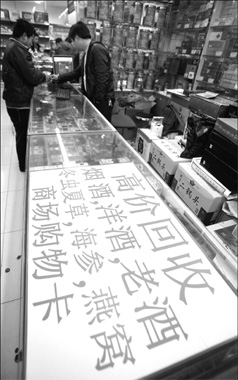 高价回收
烟酒,洋酒,老酒
冬虫夏草,海参,燕窝
商场购物卡